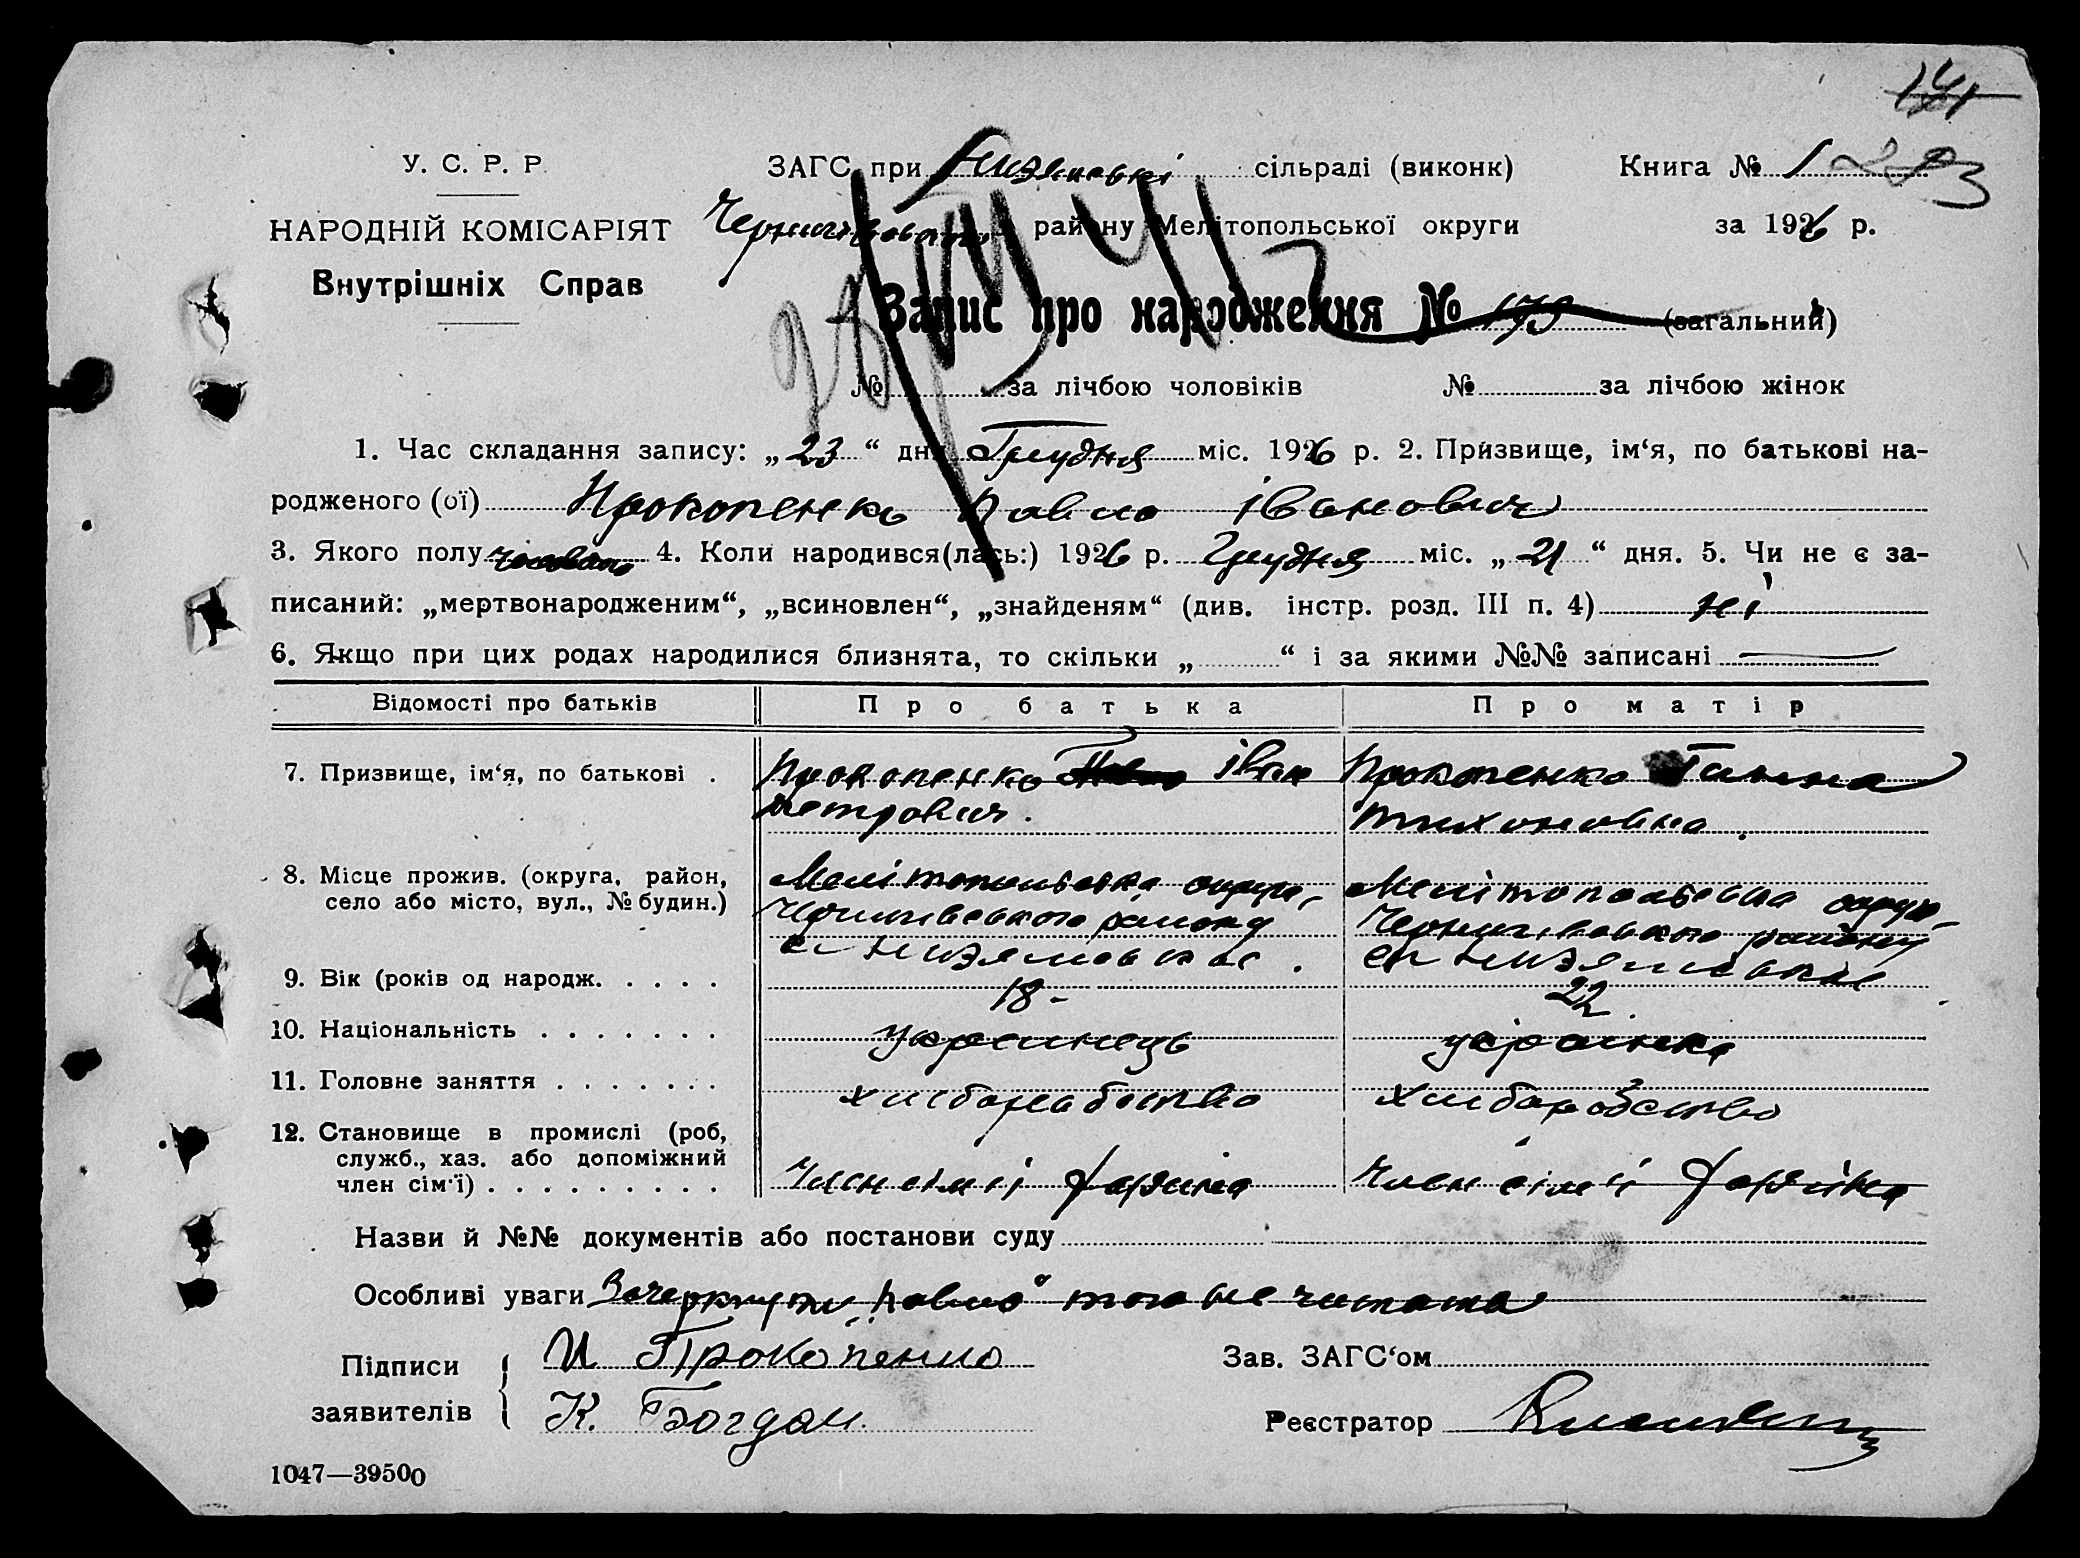 141
У. С. Р. Р.
ЗАГС при Низянські сільраді (виконк) Книга № 1 283
НАРОДНІЙ КОМІСАРІЯТ
Чернигівського району Мелітопольської округи за 1926 р.
Внутрішніх Справ
Запис про народження № 173 (загальний)
№ за лічбою чоловіків № за лічбою жінок
1. Час складання запису: „23“ дня Грудня міс. 1926 р. 2. Призвище, ім‘я, по батькові на-
родженого (ої) Прокопенко Павло Іванович
3. Якого полу 4. Коли народився(лась:) 1926 р. Грудня міс. „21“ дня. 5. Чи не є за-
писаний: „мертвонародженим“, „всиновлен“, „знайденям“ (див. інстр. розд. III п. 4) ні
6. Якщо при цих родах народилися близнята, то скільки „ “ і за якими №№ записані
Відомості про батьків Про батька Про матір
7. Призвище, ім‘я, по батькові . Прокопенко Павло Іван Прокопенко Ганна
Петрович. Тихоновна.
8. Місце прожив. (округа, район, Мелітопольська округа, Мелітопольська округа
село або місто, вул., № будин.) Чернигівського району Чернигівського району
с. Низяновка. с. Низяновка
9. Вік (років од народж. . . . . 18- 22.
10. Національність . . . . . . . украинець українка
11. Головне заняття . . . . . . . хліборобство хліборобство
12. Становище в промислі (роб,
служб., хаз. або допоміжний
член сім‘ї) . . . . . . . . . Член сімії Член сімії
Назви й №№ документів або постанови суду
Особливі уваги Зачеркнути „Павло“ того не читати
Підписи И Прокопенко Зав. ЗАГС‘ом
заявителів К. Богдан. Реєстратор
1047—39500